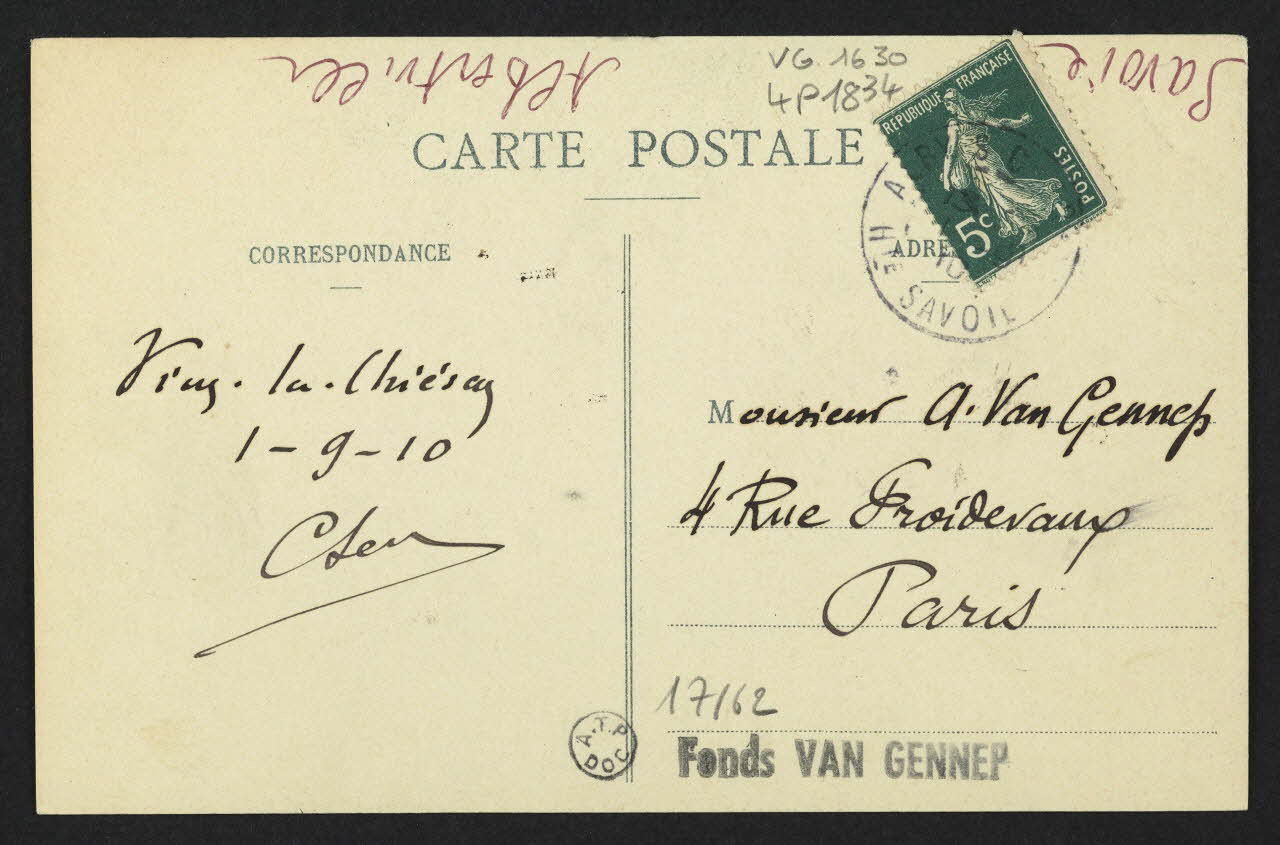 Savoie
Albertville
VG 1630
4P1834
CARTE POSTALE
RÉPUBLIQUE FRANÇAISE
POSTES
5c
HTE SAVOIE
CORRESPONDANCE
1-9-10
Monsieur A. Van Gennep
4 Rue Froidevaux
Paris
17/62
A.T.P
DOC
Fonds VAN GENNEP